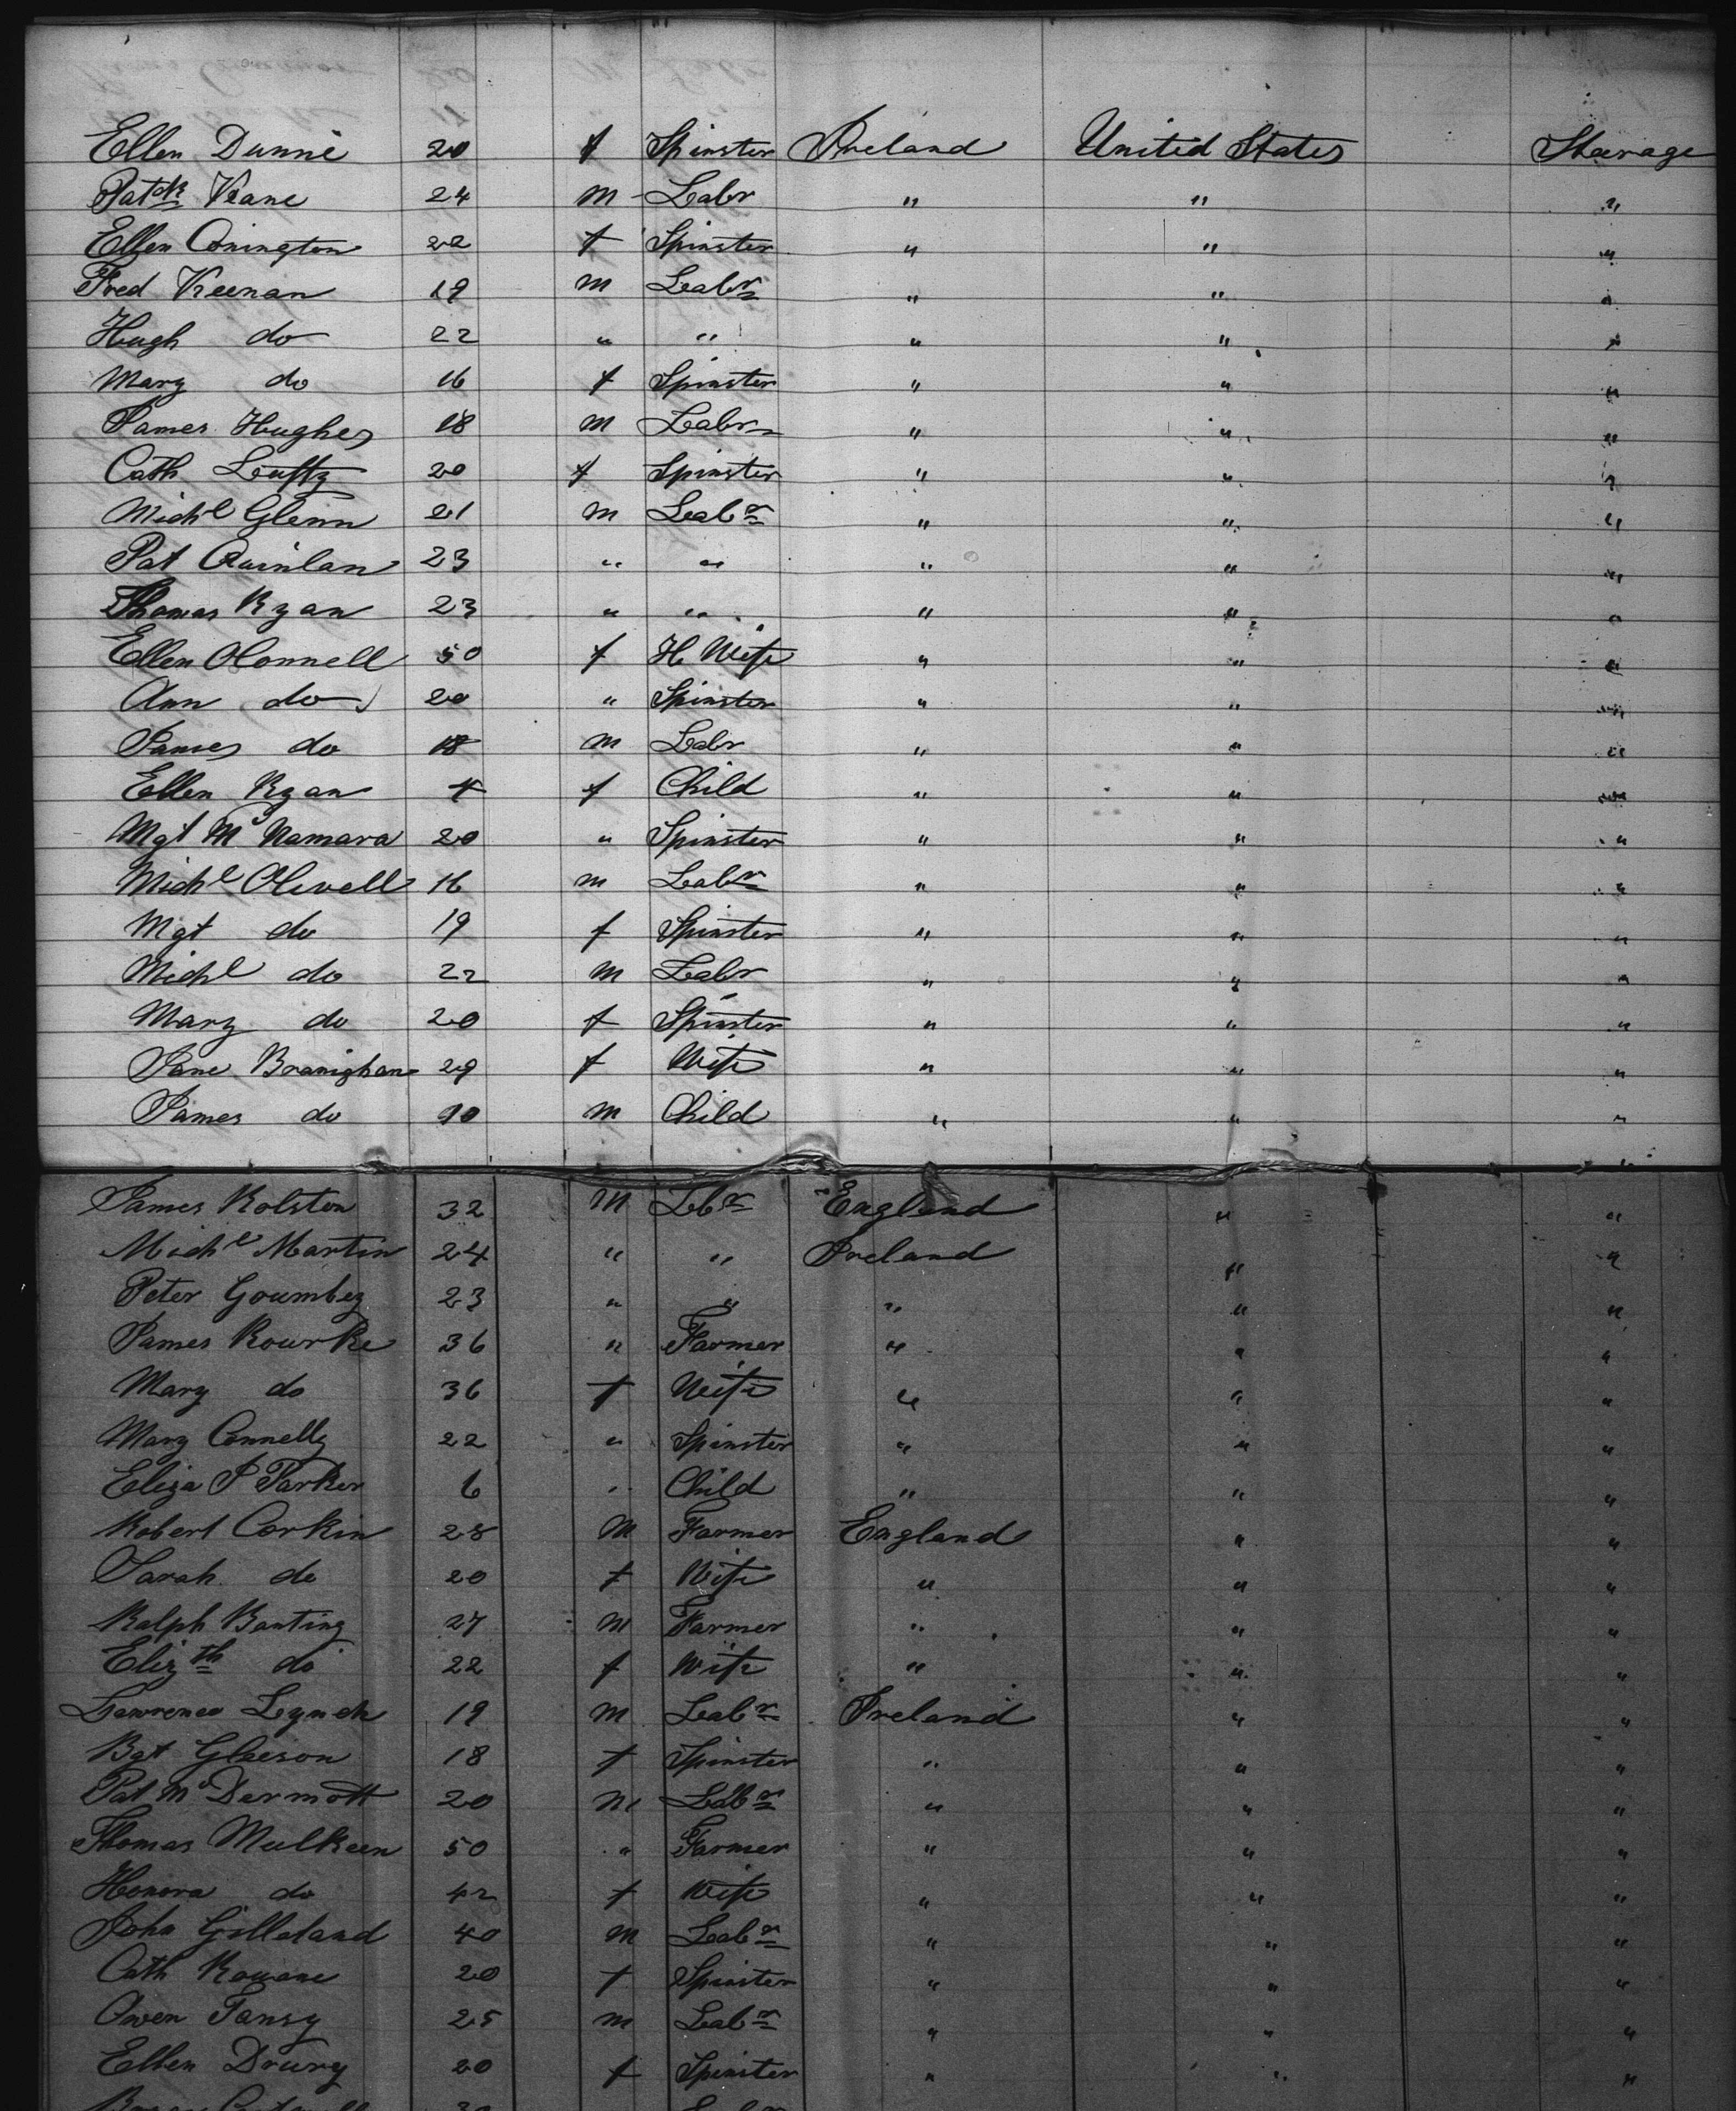 Ellen Dunne 20 f Spinster Ireland United States Steerage
Patck Keane 24 m Labr " " "
Ellen Conington 22 f Spinster " " "
Fred Keenan 19 m Labr " " "
Hugh do 22 " " " " "
Mary do 16 f Spinster " " "
James Hughes 18 m Labr " " "
Cath Leufty 20 f Spinster " " "
Michl Glenn 21 m Labr " " "
Pat Quinlan 23 " " " " "
Thomas Ryan 23 " " " " "
Ellen OConnell 50 f H. Wife " " "
Ann do 20 " Spinster " " "
James do 18 m Labr " " "
Ellen Ryan 4 f Child " " "
Mgt McNamara 20 " Spinster " " "
Michl Olivell 16 m Labr " " "
Mgt do 19 f Spinster " " "
Michl do 22 m Labr " " "
Mary do 20 f Spinster " " "
Jane Branighan 29 f Wife " " "
James do 10 m Child " " "
James Rolston 32 m Lbr England " "
Michl Martin 24 " " Ireland " "
Peter Goumbey 23 " " " " "
James Rourke 36 " Farmer " " "
Mary do 36 f Wife " " "
Mary Connelly 22 " Spinster " " "
Eliza J Parker 6 " Child " " "
Robert Corkin 28 m Farmer England " "
Sarah do 20 f Wife " " "
Ralph Banting 27 m Farmer " " "
Elizth do 22 f Wife " " "
Lawrence Lynch 19 m Labr Ireland " "
Bgt Gleeson 18 f Spinster " " "
Pat McDermott 20 m Labr " " "
Thomas Mulkeen 50 " Farmer " " "
Honora do 42 f Wife " " "
John Gilleland 40 m Labr " " "
Cath Rouane 20 f Spinster " " "
Owen Tansy 25 m Labr " " "
Ellen Drury 20 f Spinster " " "